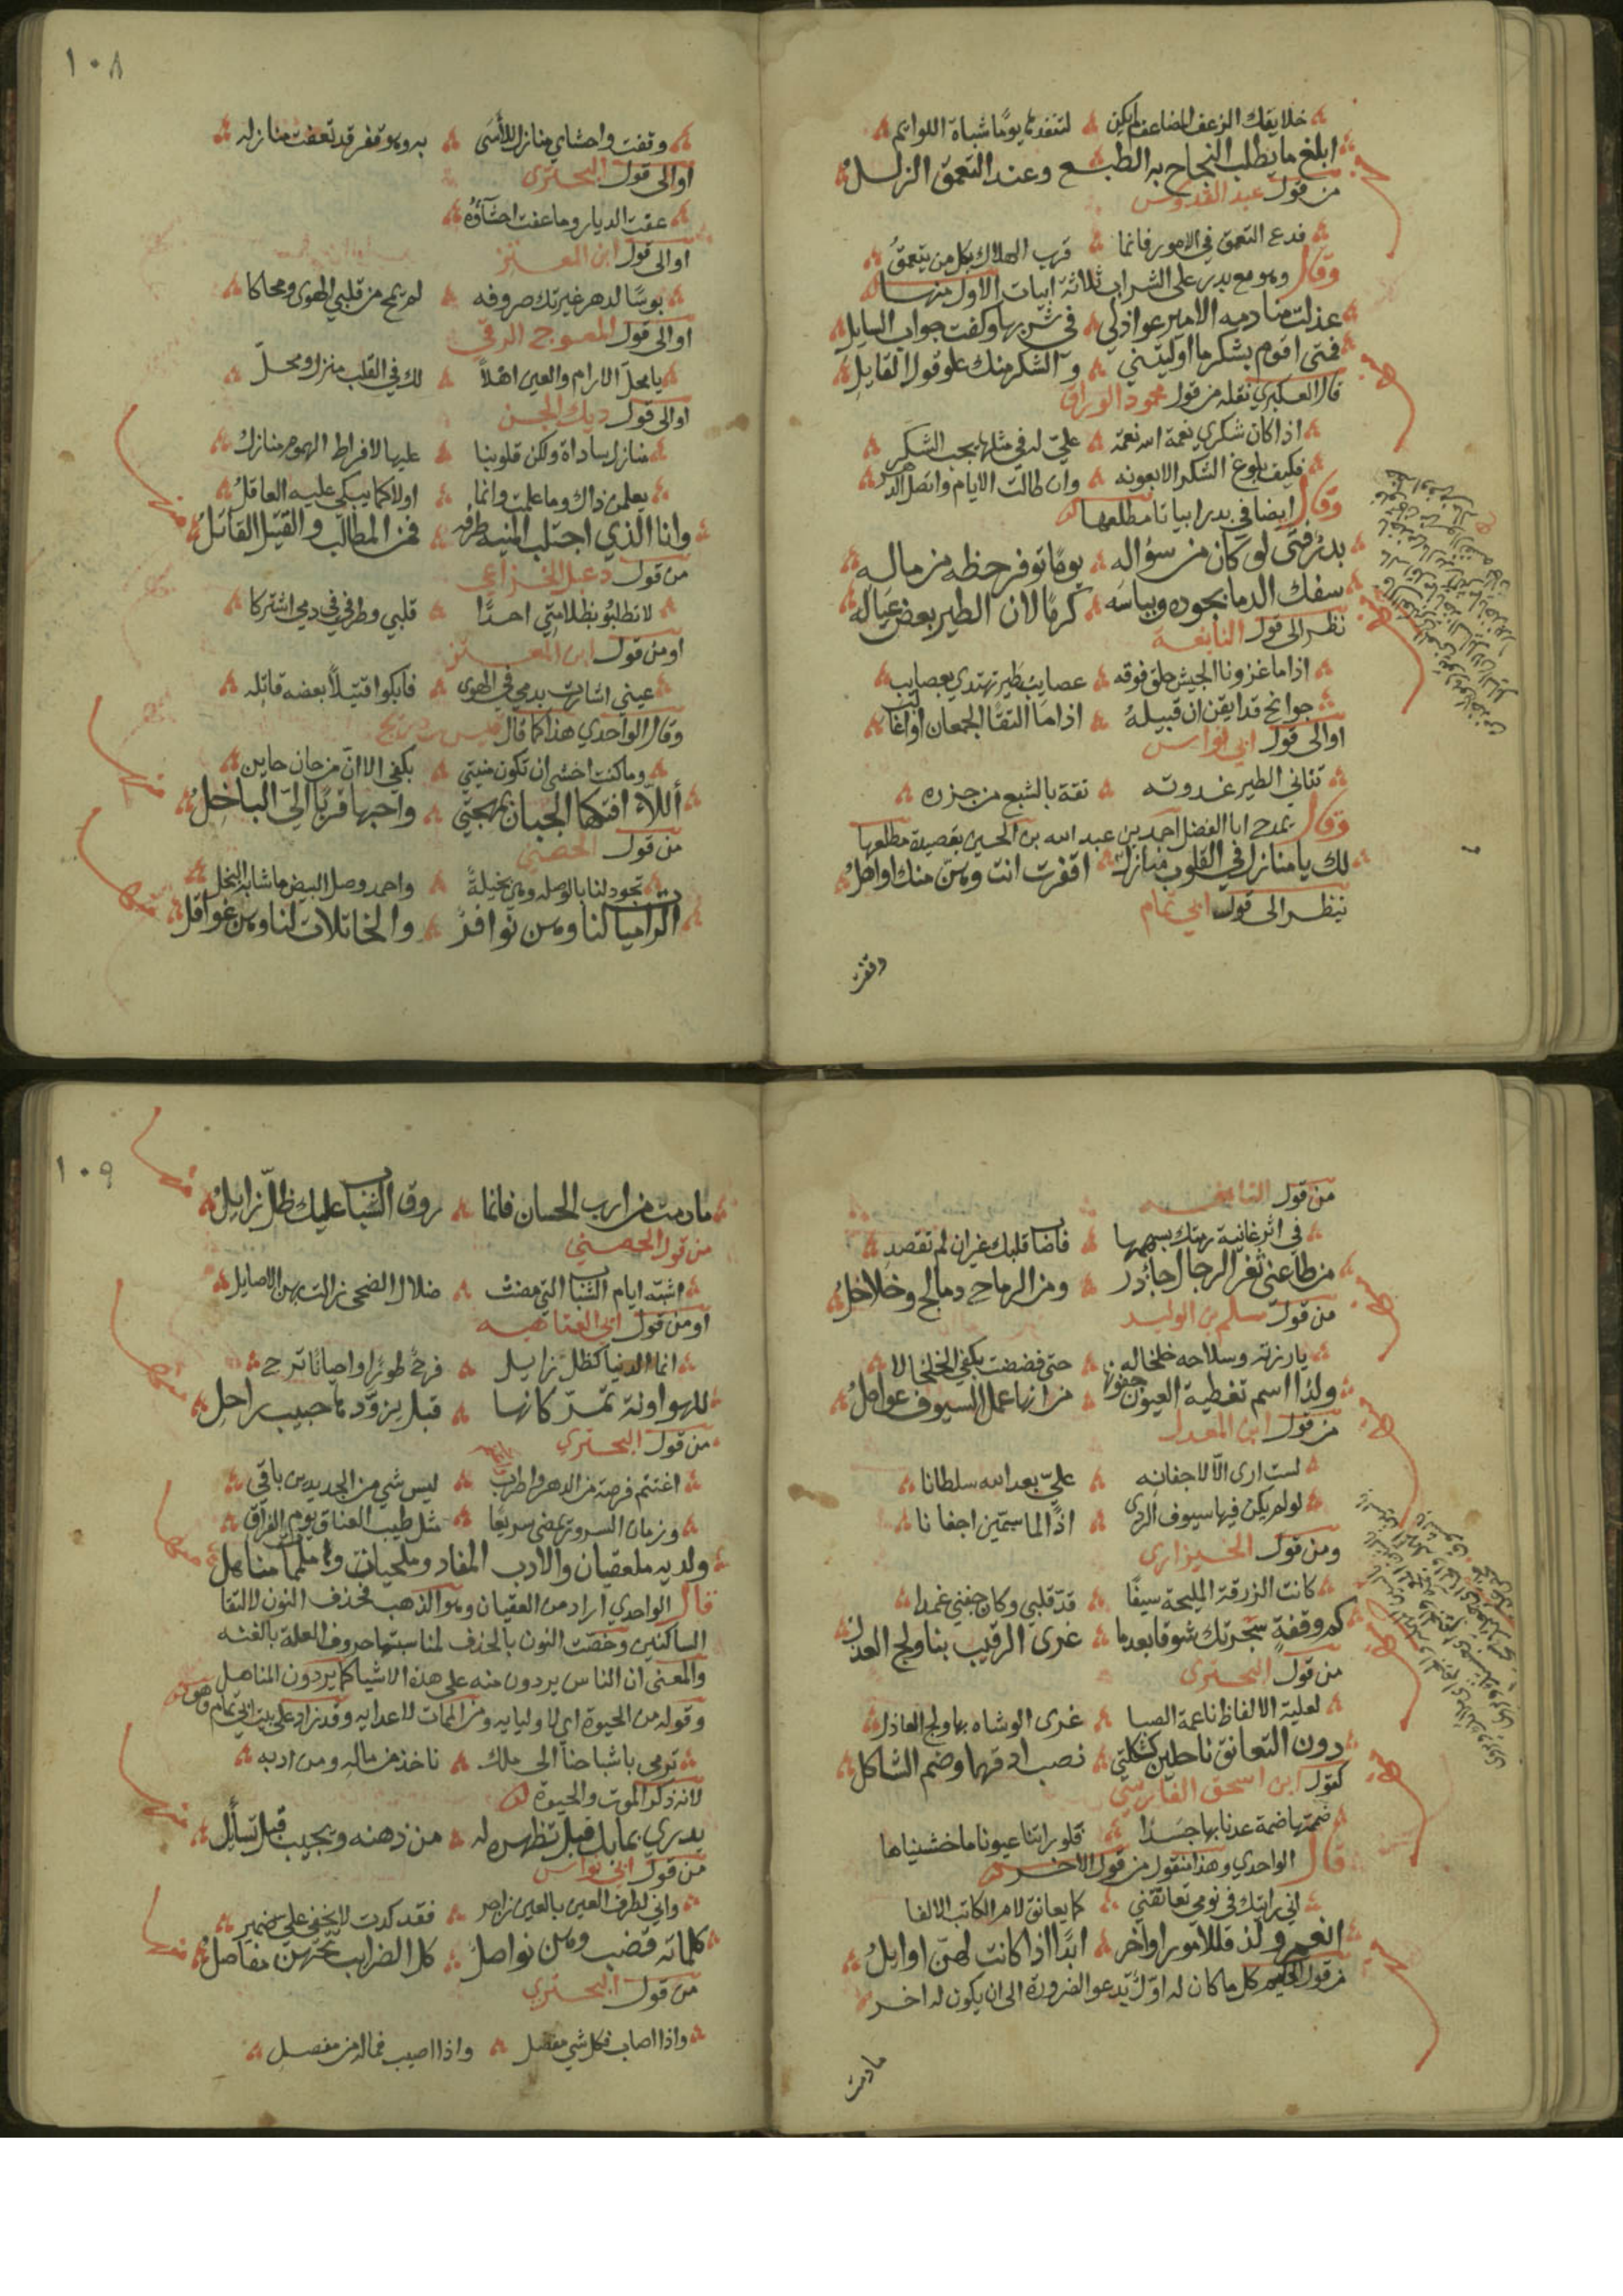 خلايقك الزعف المضاعف لم يكن لتنفد يوما شباة اللوايم
ابلغ ما يطلب النجاح به الطبع وعند التعمق الزلل
من قول عبد القدوس
فدع التعمق في الامور فانما قرب الهلاك بكل من يتعمق
وقال وهو مع بدر على الشراب ثلاثة ابيات الاول منها
عذلت منادمة الامير عواذلي في شربها وكفت جواب السايل
فمتى اقوم بشكر ما اوليتني والشكر منك علو قول القايل
قال العكبري نقله من قول محمود الوراق
اذا كان شكري نعمة الله نعمة علي له في مثلها يجب الشكر
فكيف بلوغ الشكر الا بعونه وان طالت الايام واتصل الدهر
وقال ايضا في بدر ابياتا مطلعها
بدر فتى لو كان من سؤاله يوما توفر حظه من ماله
سفك الدما بجوده وبباسه كرما لان الطير بعض عياله
نظر الى قول النابغة
اذا ما غزونا الجيش حلق فوقه عصايب طير تهتدي بعصايب
جوانح قد ايقن ان قبيله اذا ما التقا الجمعان اول غالب
او الى قول ابي نواس
تتاني الطير غدوته ثقة بالشبع من جزره
وقال يمدح ابا الفضل احمد بن عبد الله بن الحسين بقصيدة مطلعها
لك يا منازل في القلوب منازل اقفرت انت وهن منك اواهل
ينظر الى قول ابي تمام
وقفت
١٠٨
وقفت واحشاي منازل للأسى به وهو قفر قد تعفت منازله
او الى قول البحتري
عفت الديار وما عفت احشاؤه
او الى قول ابن المعتز
بوسا لدهر غيرتك صروفه لم يمح من قلبي الهوى ومحاكا
او الى قول المعوج الرقي
يا محل الارام والعين اهلا لك في القلب منزل ومحل
او الى قول ديك الجن
عليها لافراط الهموم منازل
يعلمن ذاك وما علمت وانما اولاكما يبكي عليه العاقل
وانا الذي اجتلب المنية طرفه فمن المطالب والقتيل القاتل
من قول دعبل الخزاعي
لا تطلبو بظلامتي احدا قلبي وطرفي في دمي اشتركا
او من قول ابن المعتز
عيني اشارت بدمي في الهوى فابكوا قتيلا بعضه قاتله
وقال الواحدي هذا كما قال قيس بن ذريح
وما كنت اخشى ان تكون منيتي بكفي الا ان من حان حاين
أللاء افتكها الجبان بمهجتي واحبها قربا الي الباخل
من قول الحصني
تجود لنا بالوصل وهي بخيلة واحمد وصل البيض ما شابه البخل
الراميات لنا وهن نوافر والخاتلات لنا وهن غوافل
من قول النابغة
في اثر غانية رمتك بسهمها فاصاب قلبك غير ان لم تقصد
من طاعني ثغر الرجال جآذر ومن الرماح دمالج وخلاخل
من قول مسلم بن الوليد
بارزته وسلاحه خلخاله حتى فضضت بكفي الخلخالا
ولذا اسم تغطية العيون جفونها من انها عمل السيوف عوامل
من قول ابن المعدل
لست ارى الا لاجفانه علي بعد الله سلطانا
لو لم يكن فيها سيوف الردى اذا لما سمتين اجفانا
ومن قول الخبزارزي
كانت الزرقة المليحة سيفا قد قلبي وكان جفني غمدا
كم وقفة سجرتك شوقا بعدما غرى الرقيب بنا ولج العذل
من قول البحتري
لعلية الالفاظ ناعمة الصبا غرى الوشاه بها ولج العاذل
دون التعانق ناحلين كشكلتي نصب ادقهما وضم الشاكل
كقول ابن اسحق الفارسي
ضممتها ضمة عدنا بها جسدا فلو راتنا عيون ما خشيناها
قال الواحدي وهذا منقول من قول الاخر
اني رايتك في نومي تعانقني كما يعانق لام الكاتب الالفا
انعم ولذ فللامور اواخر ابدا اذا كانت لهن اوايل
من قول الحكيم كل ما كان له اول تدعو الضرورة الى ان يكون له اخر
ما دمت
١٠٩
ما دمت من ارب الحسان فانما روق الشباب عليك ظل زايل
من قول الحصني
اشبه ايام الشباب التي مضت ضلال الضحى زالت بهن الاصايل
او من قول ابي العتاهيه
انما الدنيا كظل زايل فرح طورا واحيانا ترح
للهو اونة تمر كانها قبل يزودها حبيب راحل
من قول البحتري
اغتنم فرصة من الدهر واطرب ليس شي من الجديدين باقي
وزمان السرور يمضي سريعا مثل طيب العناق يوم الفراق
ولديه ملعقيان والادب المفاد وملحيات وملممات مناهل
قال الواحدي اراد من العقيان وهو الذهب فحذف النون لالتقا
الساكنين وخصت النون بالحذف لمناسبتها حروف العلة بالغنه
والمعنى ان الناس يردون منه على هذة الاشيا كما يردون المناهل
وقوله من الحيوة اي لاوليايه ومن الممات لاعدايه وقد زاد على بيت ابي تمام وهو
ترمي باشباحنا الى ملك ناخذ من ماله ومن ادبه
لانه ذكر الموت والحيوة
يدري بما بك قبل تظهره له من ذهنه ويجيب قبل تسايل
من قول ابي نواس
واني لطرف العين بالعين زاجر فقد كدت لا يخفى علي ضمير
كلماته قضب وهن نواصل كل الضرايب تحتهن مفاصل
من قول البحتري
واذا اصاب فكل شي مفصل واذا اصيب فما له من مفصل